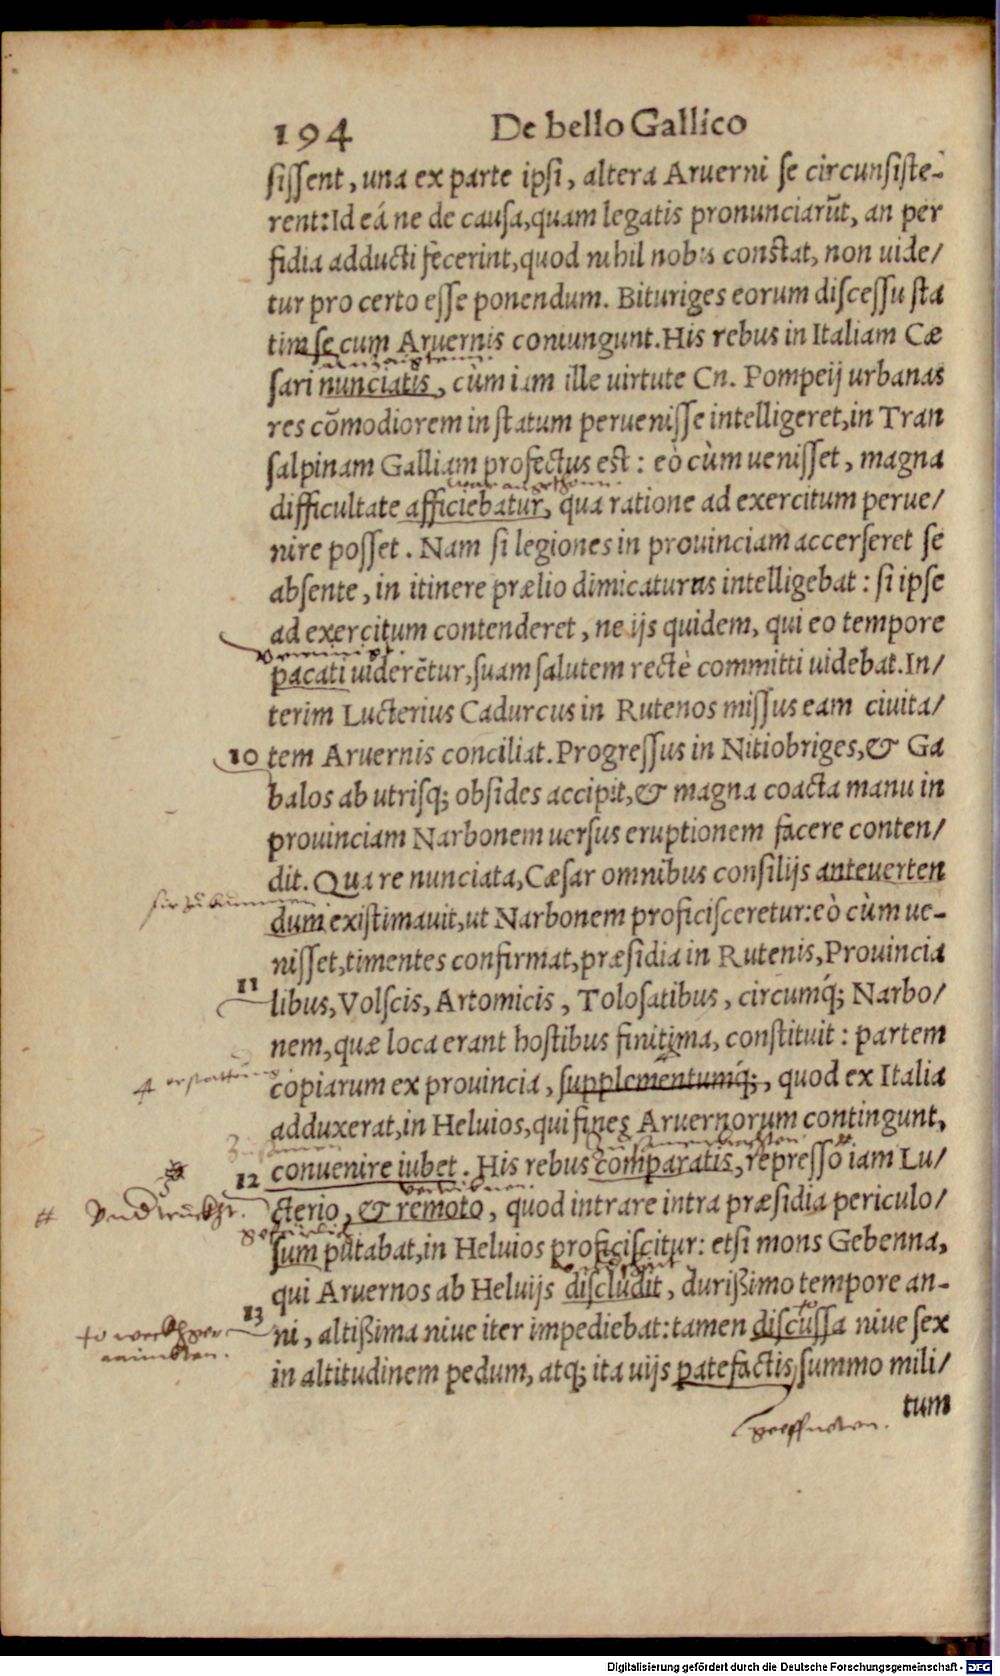 194 De bello Gallico
sissent, una ex parte ipsi, altera Aruerni se circunsiste-
rent: Id eá ne de causa, quam legatis pronunciarūt, an per
fidia adducti fecerint, quod nihil nobis constat, non uide/
tur pro certo esse ponendum. Bituriges eorum discessu sta
tim se cum Aruernis coniungunt. His rebus in Italiam Cæ
sari nunciatis, cùm iam ille uirtute Cn. Pompeij urbanas
res cõmodiorem in statum peruenisse intelligeret, in Tran
salpinam Galliam profectus est: eò cùm uenisset, magna
difficultate afficiebatur, qua ratione ad exercitum perue/
nire posset. Nam si legiones in prouinciam accerseret se
absente, in itinere prælio dimicaturas intelligebat: si ipse
ad exercitum contenderet, ne ijs quidem, qui eo tempore
pacati uiderẽtur, suam salutem rectè committi uidebat. In/
terim Lucterius Cadurcus in Rutenos missus eam ciuita/
10 tem Aruernis conciliat. Progressus in Nitiobriges, & Ga
balos ab utrisq; obsides accipit, & magna coacta manu in
prouinciam Narbonem uersus eruptionem facere conten/
dit. Qua re nunciata, Cæsar omnibus consilijs anteuerten
dum existimauit, ut Narbonem proficisceretur: eò cùm ue-
nisset, timentes confirmat, præsidia in Rutenis, Prouincia
11 libus, Volscis, Artomicis, Tolosatibus, circumq́; Narbo/
nem, quæ loca erant hostibus finitima, constituit: partem
copiarum ex prouincia, supplementumq́;, quod ex Italia
adduxerat, in Heluios, qui fines Aruernorum contingunt,
12 conuenire iubet. His rebus comparatis, represso iam Lu/
cterio, & remoto, quod intrare intra præsidia periculo/
sum putabat, in Heluios proficiscitur: etsi mons Gebenna,
qui Aruernos ab Heluijs discludit, durißimo tempore an-
13 ni, altißima niue iter impediebat: tamen discussa niue sex
in altitudinem pedum, atq; ita uijs patefactis, summo mili/
tum
geöffneten.
Digitalisierung gefördert durch die Deutsche Forschungsgemeinschaft - DFG